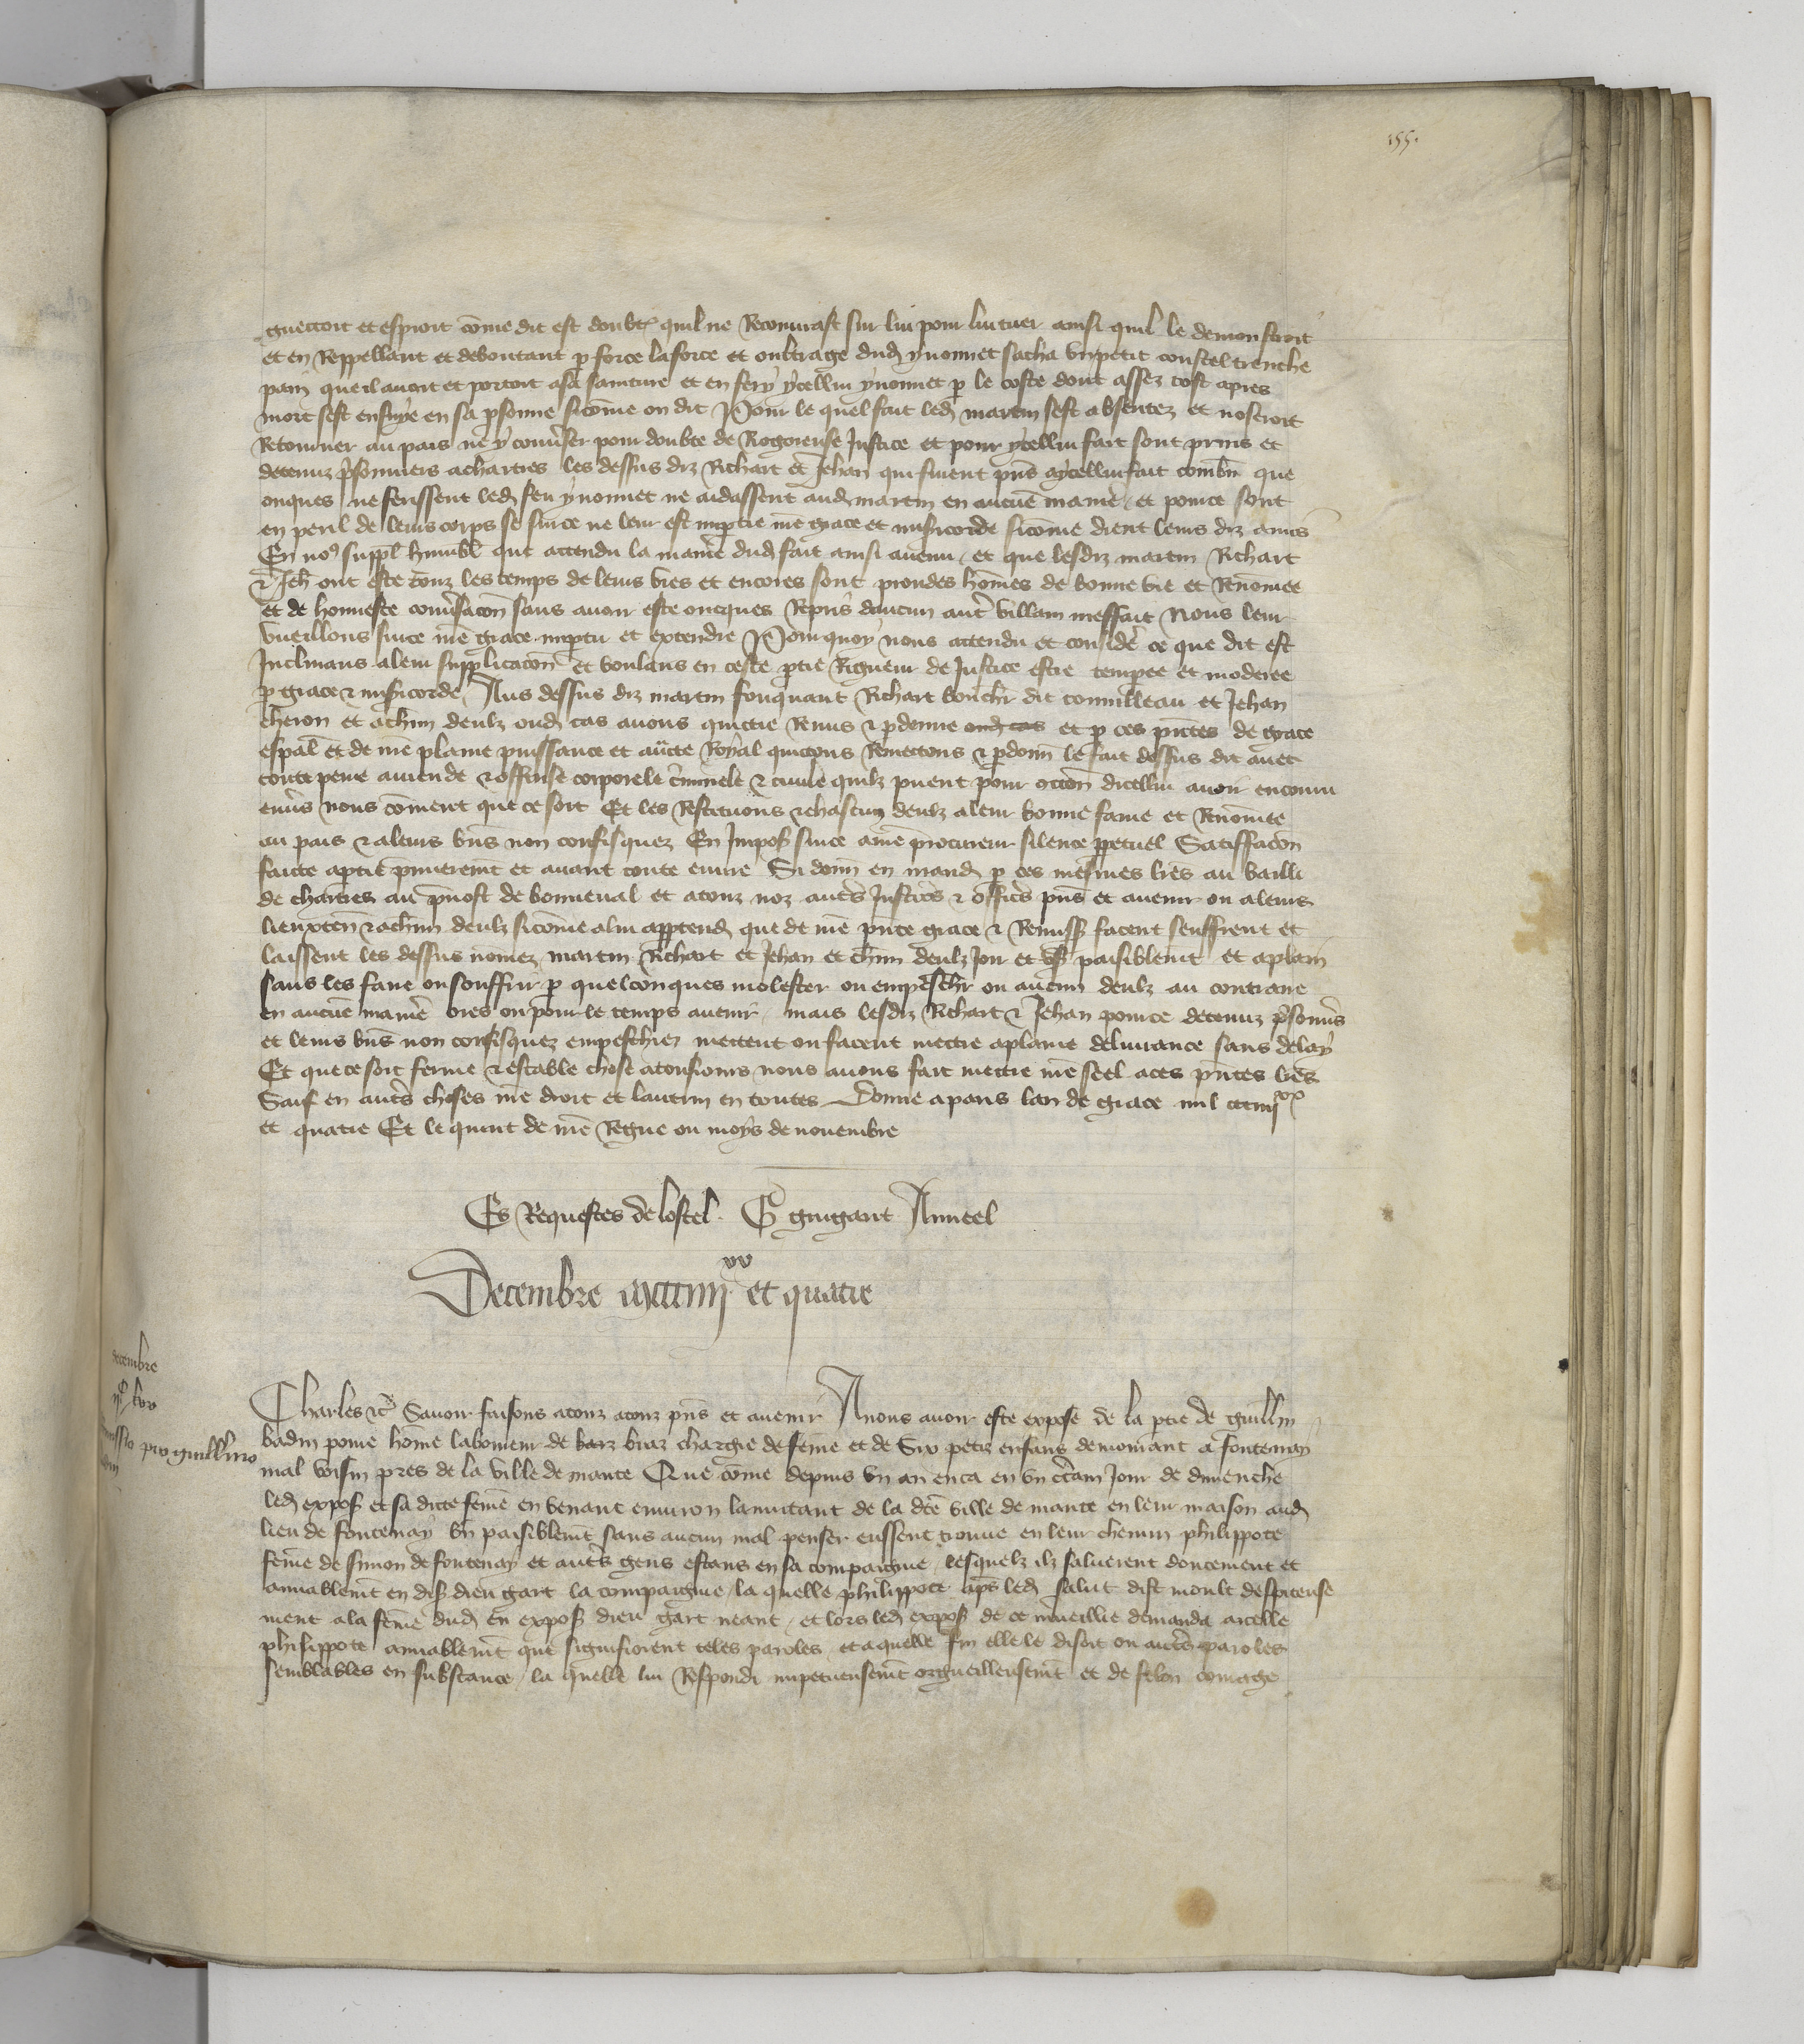 155.
guettoit et espioit cōme dit est doubt quil ne Recouurast sur lui pour lui tuer ainsi quil le demonstroit
et en Reppellant et deboutant p force la force et oultrage dud ynonnet sacha vn petit coustel trenche
pain que il auoit et portoit a sa sainture et en fery ycellui ynonnet p le coste dont assez tost apres
mort sest ensuye en sa psonne sicōme on dit Pour le quel fait led martin sest absentez et noseroit
Retourner au pais ne y conuser pour doubte de Rogoreuse Justice et pour ycellui fait sont prins et
detenuz psonniers a chartres les dessus diz Richart et Jehan qui furent pns a ycellui fait combn que
onques ne ferissent led feu ynonnet ne aidassent aud martin en aucūe manie et pource sont
en peril de leurs corps se sur ce ne leur est imptie nre grace et misicorde sicōme dient leurs diz amis
En nos suppl humbl que attendu la manie dud fait ainsi auenu et que lesdiz martin Richart
et Jeh ont este touz les temps de leurs vies et encores sont preudes hōmes de bonne vie et Renōmee
et de honneste conusacon sans auoir este oncques Repris daucun autre villain meffait Nous leur
vueillons sur ce nre grace imptir et extendre Pour quoy nous attendu et conside ce que dit est
Inclinans a leur supplicacon et voulans en ceste ptie Rigueur de Justice estre tempee et moderee
p grace et misicorde Aus dessus diz martin fouquaut Richart bouchr dit connilleau et Jehan
cheron et a chun deulz oud cas auons quictie Remis et pdonne oud cas et p ces pntes de grace
espal et de nre plaine puissance et aucte Royal quictons Remettons et pdonn le fait dessus dit auec
toute peine amende et offense corporele ciminele et ciuile quilz puent pour occon dicellui auoir encouru
enuers nous cōment que ce soit Et les Restituons et chascun deulz a leur bonne fame et Renōmee
au pais et a leurs bns non confisquez En Impos sur ce a nre procureur silence ppetuel Satiffacon
faicte a ptie pmieremt et auant toute euure Si donn en mand p ces mesmes lres au bailli
de chartres au puost de bonneual et a touz noz autrs Justicrs et officrs pns et auenir ou a leurs
lieuxten et a chun deulz sicōme a lui apptend que de nre pnte grace et Remiss facent seuffrent et
laissent les dessus nōmez martin Richart et Jehan et chun deulz Joir et vs paisiblemt et a plain
sans les faire ou souffrir p quelconques molester ou empeschr ou aucun deulz au contraire
en aucūe manie ores ou pour le temps auenir mais lesdiz Richart et Jehan pource detenuz psonns
et leurs bns non confisquez empeschiez mettent ou facent mettre a plaine deliurance sans delay
Et que ce soit ferme et estable chose a tousiours nous auons fait mettre nre seel a ces pntes lres
Sauf en autrs choses nre droit et lautrui en toutes Donne a paris lan de grace mil ccciiij xx
et quatre Et le quint de nre Regne ou moys de nouembre
Es Requestes de lostel. G guigant Anneel
Decembre mccciiij xx et quatre
decembre
Charles etc Sauoir faisons a touz a touz pns et auenir A nous auoir este expose de la ptie de guillm
pro guillmo
badin poure hōme laboureur de barz braz chargie de fēme et de Six petiz enfans demourant a fontenay
mal voisin pres de la ville de mante Que cōme depuis vn an enca en vn ctain Jour de dimenche
led expos et sa dicte fēme en venant enuiron lanuitant de la dcte ville de mante en leur maison aud
lieu de fontenay vn paisiblemt sans aucun mal penser eussent trouue en leur chemin philippote
fēme de simon de fontenay et autrs gens estans en sa compaignie lesquelz ilz saluerent doucement et
amiablemt en dis dieu gart la compaignie la quelle philippote aps led salut dist moult despiteuse
ment a la fēme dud en expos dieu gart neant et lors led expos de ce mueillie demanda a icelle
philippote amiablemt que signifioient teles paroles et a quelle fin elle le disoit ou autrs paroles
semblables en substance la quelle lui Respondi impetueusemt orgueilleusemt et de felon courage